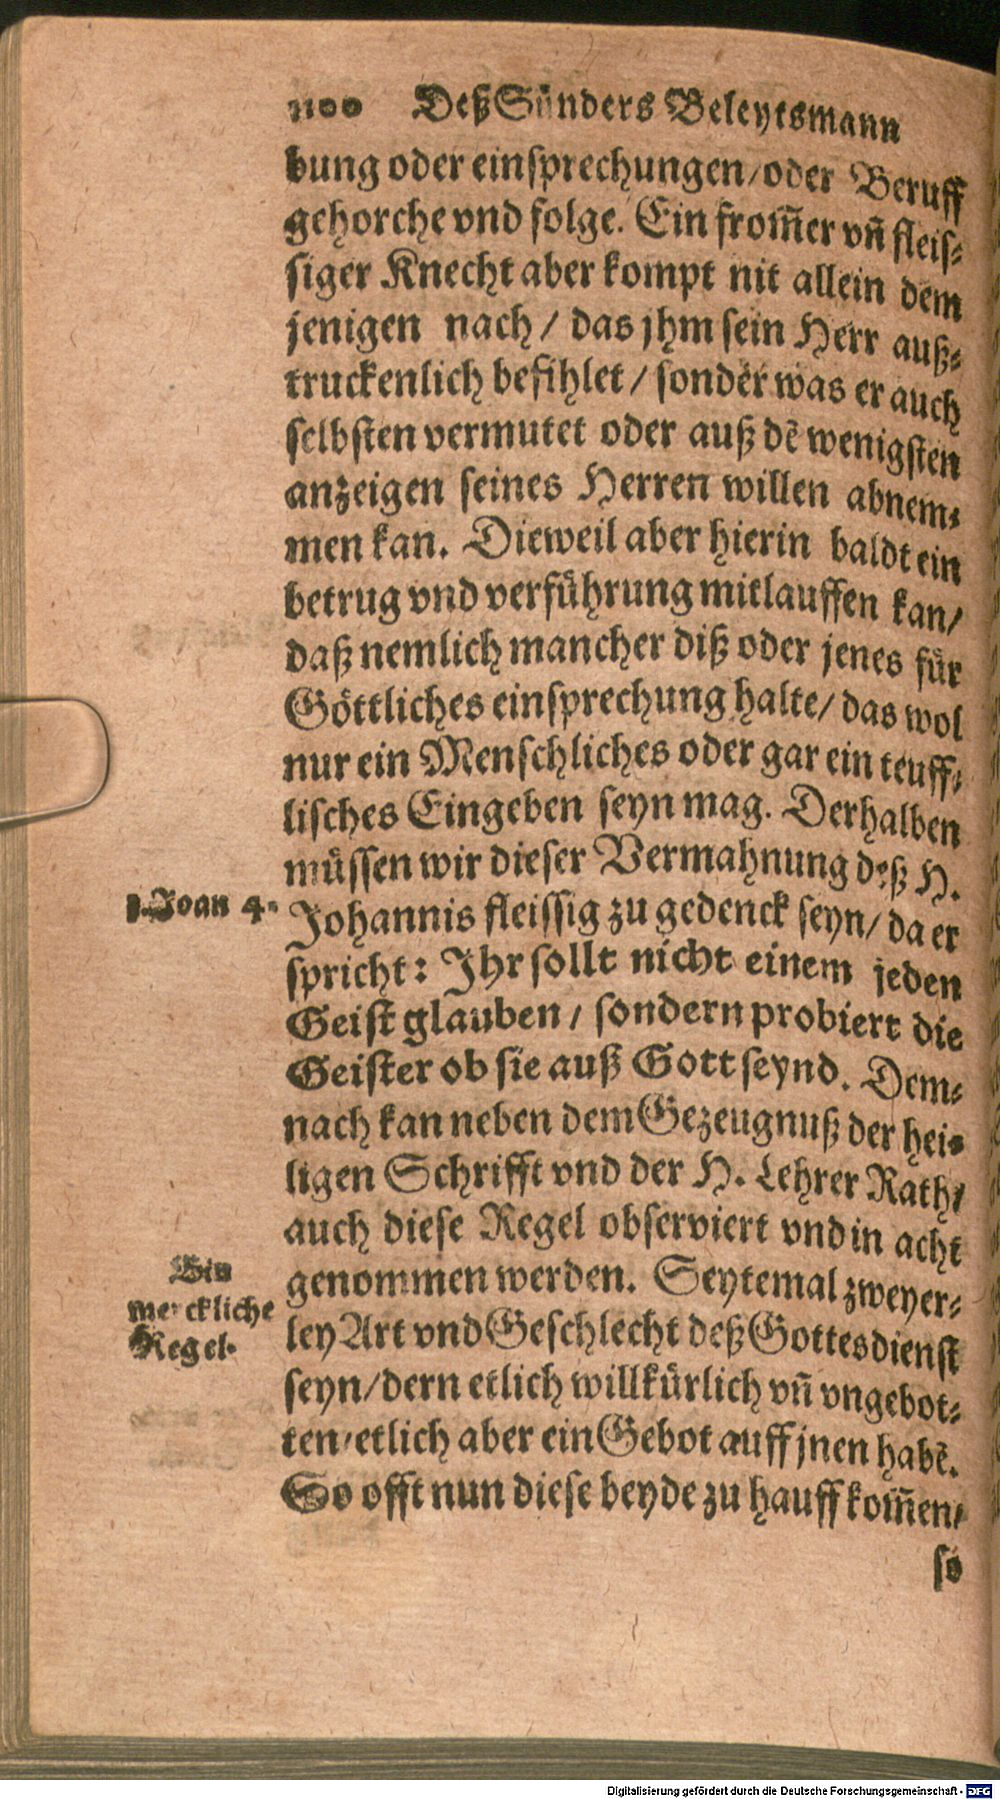 1100 Deß Sünders Beleytsmann
bung oder einsprechungen/oder Beruff
gehorche vnd folge. Ein from̃er vñ fleis⸗
siger Knecht aber kompt nit allein dem
jenigen nach / das jhm sein Herr auß⸗
truckenlich befihlet / sonder was er auch
selbsten vermutet oder auß dẽ wenigsten
anzeigen seines Herren willen abnem⸗
men kan. Dieweil aber hierin baldt ein
betrug vnd verführung mitlauffen kan/
daß nemlich mancher diß oder jenes für
Göttliches einsprechung halte/ das wol
nur ein Menschliches oder gar ein teuff⸗
lisches Eingeben seyn mag. Derhalben
müssen wir dieser Vermahnung deß H.
1. Joan 4.
Johannis fleissig zu gedenck seyn/ da er
spricht: Ihr sollt nicht einem jeden
Geist glauben / sondern probiert die
Geister ob sie auß Gott seynd. Dem⸗
nach kan neben dem Gezeugnuß der hei⸗
ligen Schrifft vnd der H. Lehrer Rath/
auch diese Regel observiert vnd in acht
Ein
merckliche
Regel.
genommen werden. Seytemal zweyer⸗
ley Art vnd Geschlecht deß Gottesdienst
seyn/dern etlich willkürlich vñ vngebot⸗
ten/etlich aber ein Gebot auff jnen habẽ.
So offt nun diese beyde zu hauff kom̃en/
so
Digitalisierung gefördert durch die Deutsche Forschungsgemeinschaft - DFG